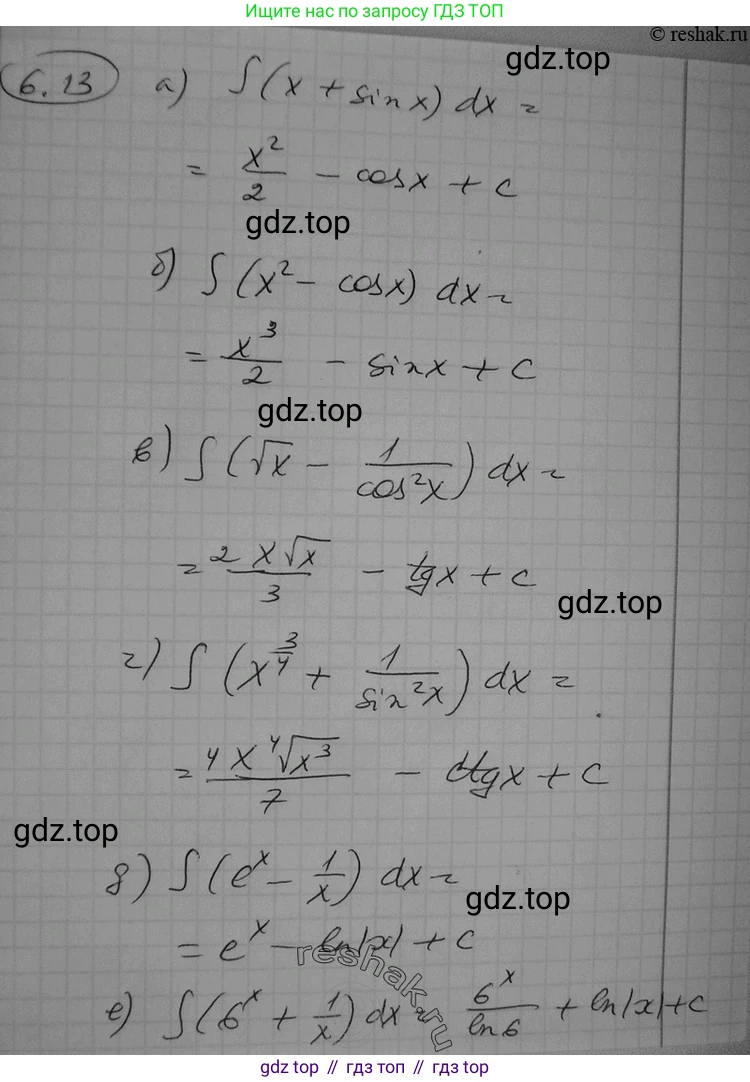 Ищите нас по запросу ГДЗ ТОП
© reshak.ru
gdz.top
6.13 а) ∫(x + sin x) dx =
= x²/2 - cos x + c
gdz.top
б) ∫(x² - cos x) dx =
= x³/2 - sin x + c
gdz.top
в) ∫(√x - 1/cos²x) dx =
= 2x√x/3 - tg x + c
gdz.top
г) ∫(x^(3/4) + 1/sin²x) dx =
= 4x ⁴√x³/7 - ctg x + c
gdz.top
д) ∫(e^x - 1/x) dx =
gdz.top
= e^x - ln|x| + c
reshak.ru
е) ∫(6^x + 1/x) dx = 6^x/ln 6 + ln|x| + c
gdz.top // гдз топ // gdz.top // гдз топ